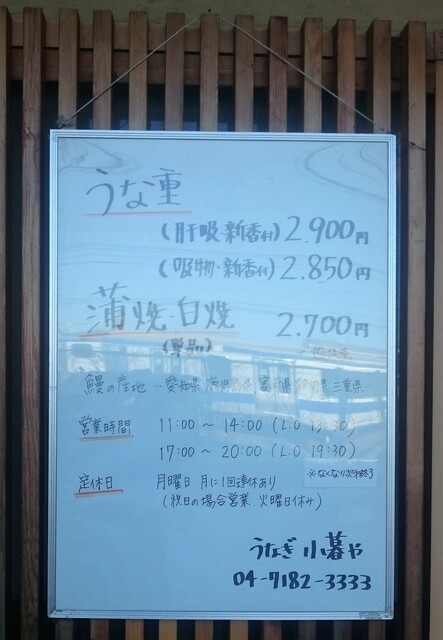 うな重
(肝吸・新香付) 2.900円
(吸物・新香付) 2.850円
蒲焼・白焼 2.700円
(単品)
鰻の産地 愛知県 鹿児島県 宮崎県 三重県
営業時間 11:00 〜 14:00 (L.O 13:30)
17:00 〜 20:00 (L.O 19:30)
※なくなり次第終了
定休日 月曜日 月に1回連休あり
(祝日の場合営業、火曜日休み)
うなぎ 小暮や
04-7182-3333